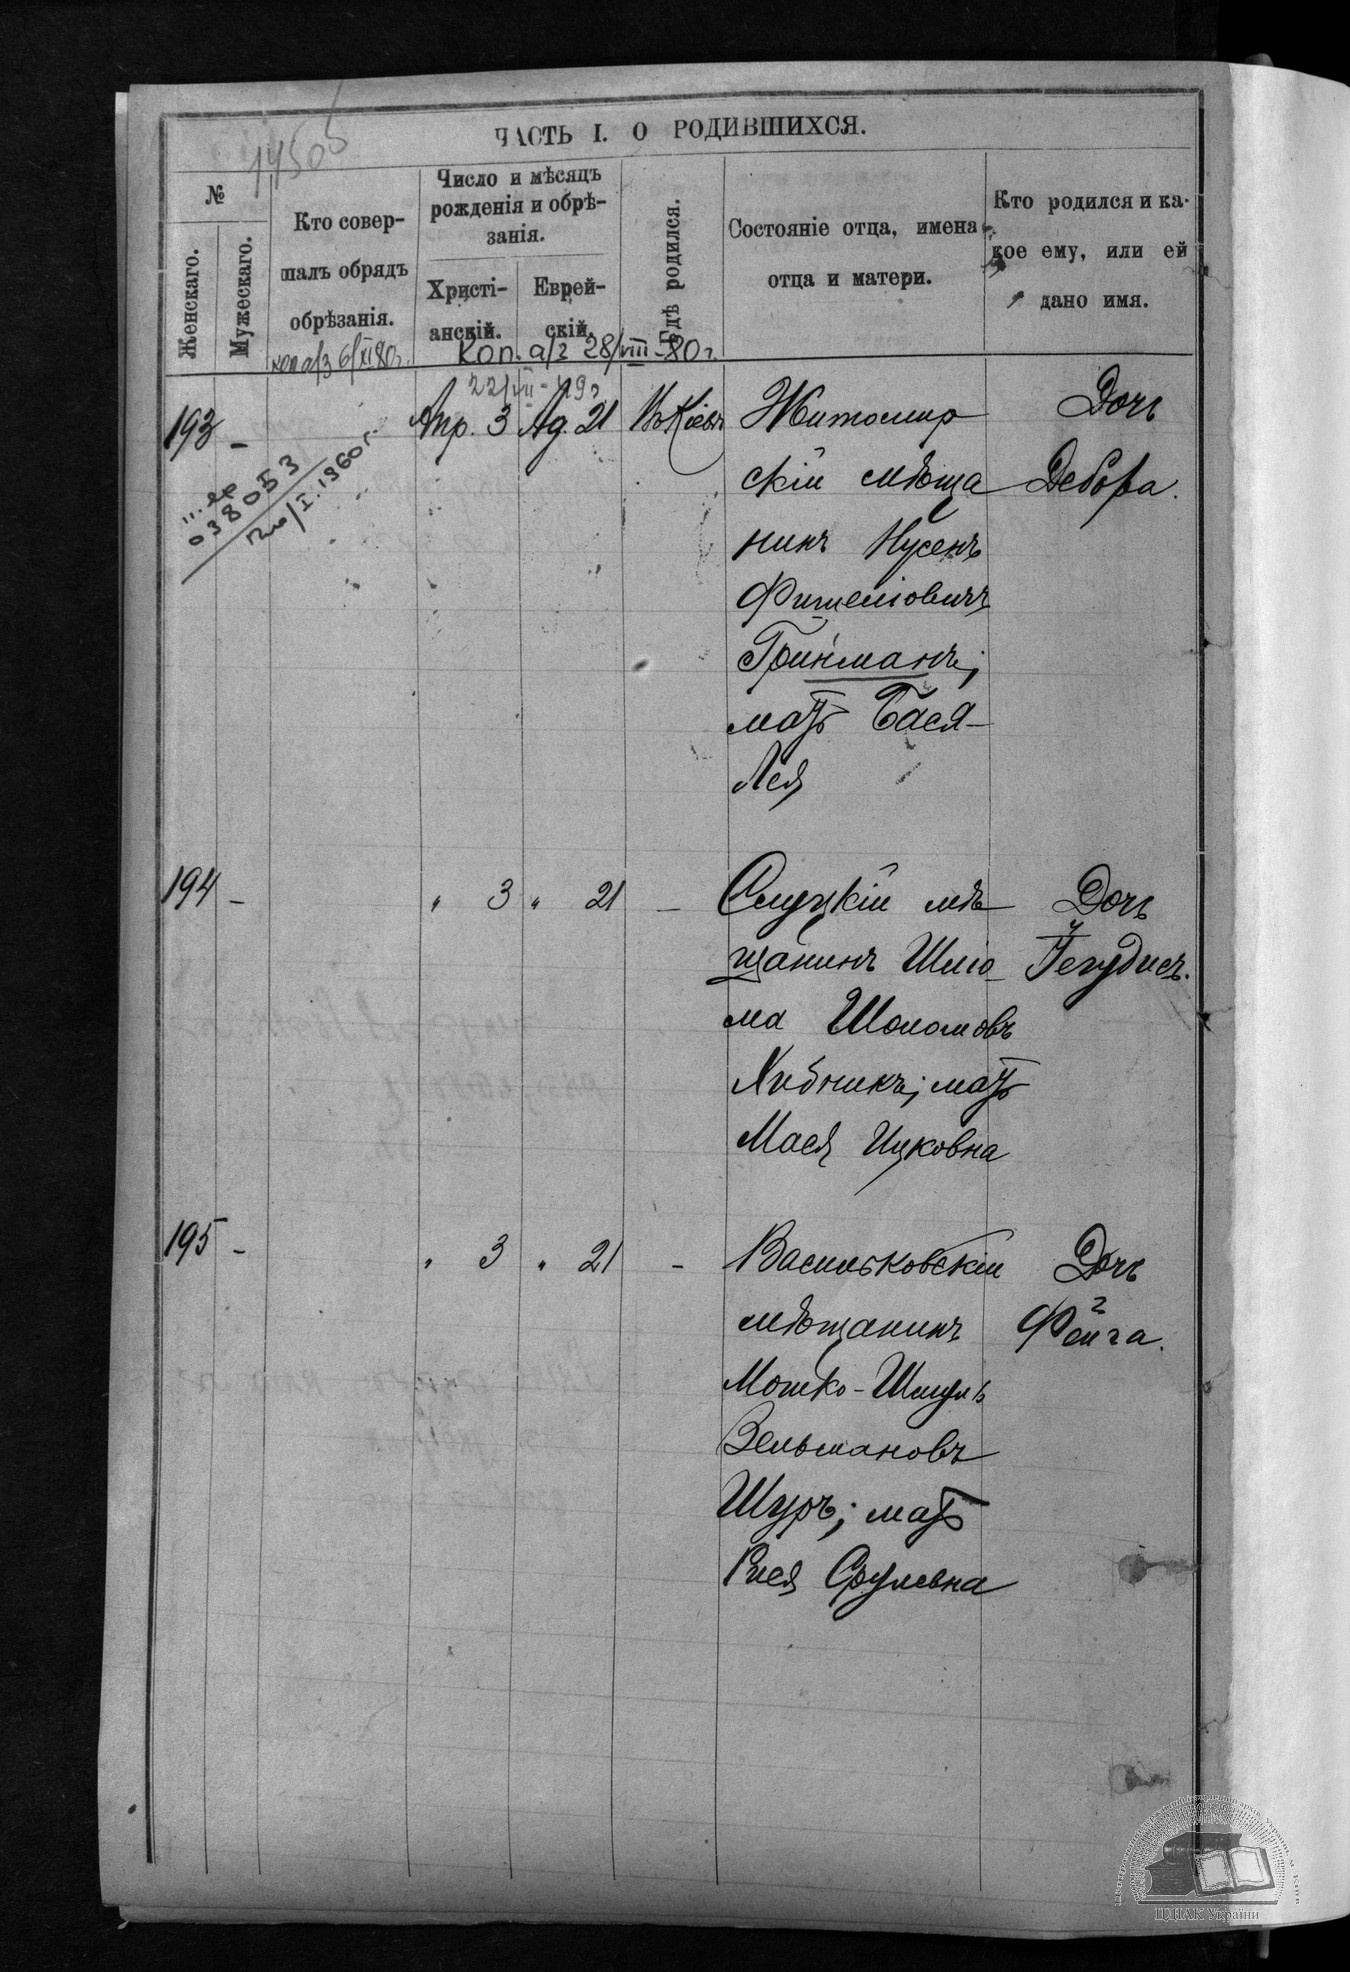 ЧАСТЬ I. О РОДИВШИХСЯ.
№
Женскаго.
Мужескаго.
Кто совер-
шалъ обрядъ
обрѣзанія.
Число и мѣсяцъ
рожденія и обрѣ-
занія.
Христі-
анскій.
Еврей-
скій.
Гдѣ родился.
Состояніе отца, имена
отца и матери.
Кто родился и ка-
кое ему, или ей
дано имя.
коп а/з 6/XI 80г.
Коп. а/г 28/VIII-80г.
22/VII-49г
193 -
Апр. 3 Ад. 21 Въ Кіевѣ
Житомир
скій мѣща
нинъ Нусенъ
Фишеліовичъ
Гринманъ;
мать Бася-
Лея
Дочь
Дебора.
038053
I.1960г.
194 -
" 3 " 21 -
Слуцкій мѣ
щанинъ Шліо
ма Шоломовъ
Хибникъ; мать
Мася Ицковна
Дочь
Іегудисъ.
195 -
" 3 " 21 -
Васильковскій
мѣщанинъ
Мошко-Шмуль
Зельмановъ
Шуръ; мать
Рися Срулевна
Дочь
Фейга.
ЦДІАК України